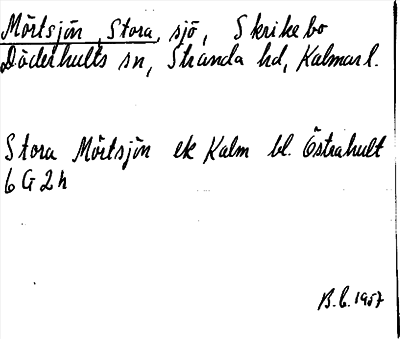 Mörtsjön, Stora, sjö, Skrikebo
Döderhults sn, Stranda hd, Kalmar l.
Stora Mörtsjön ek Kalm bl. Östrahult
6 G 2 h
B.C. 1957